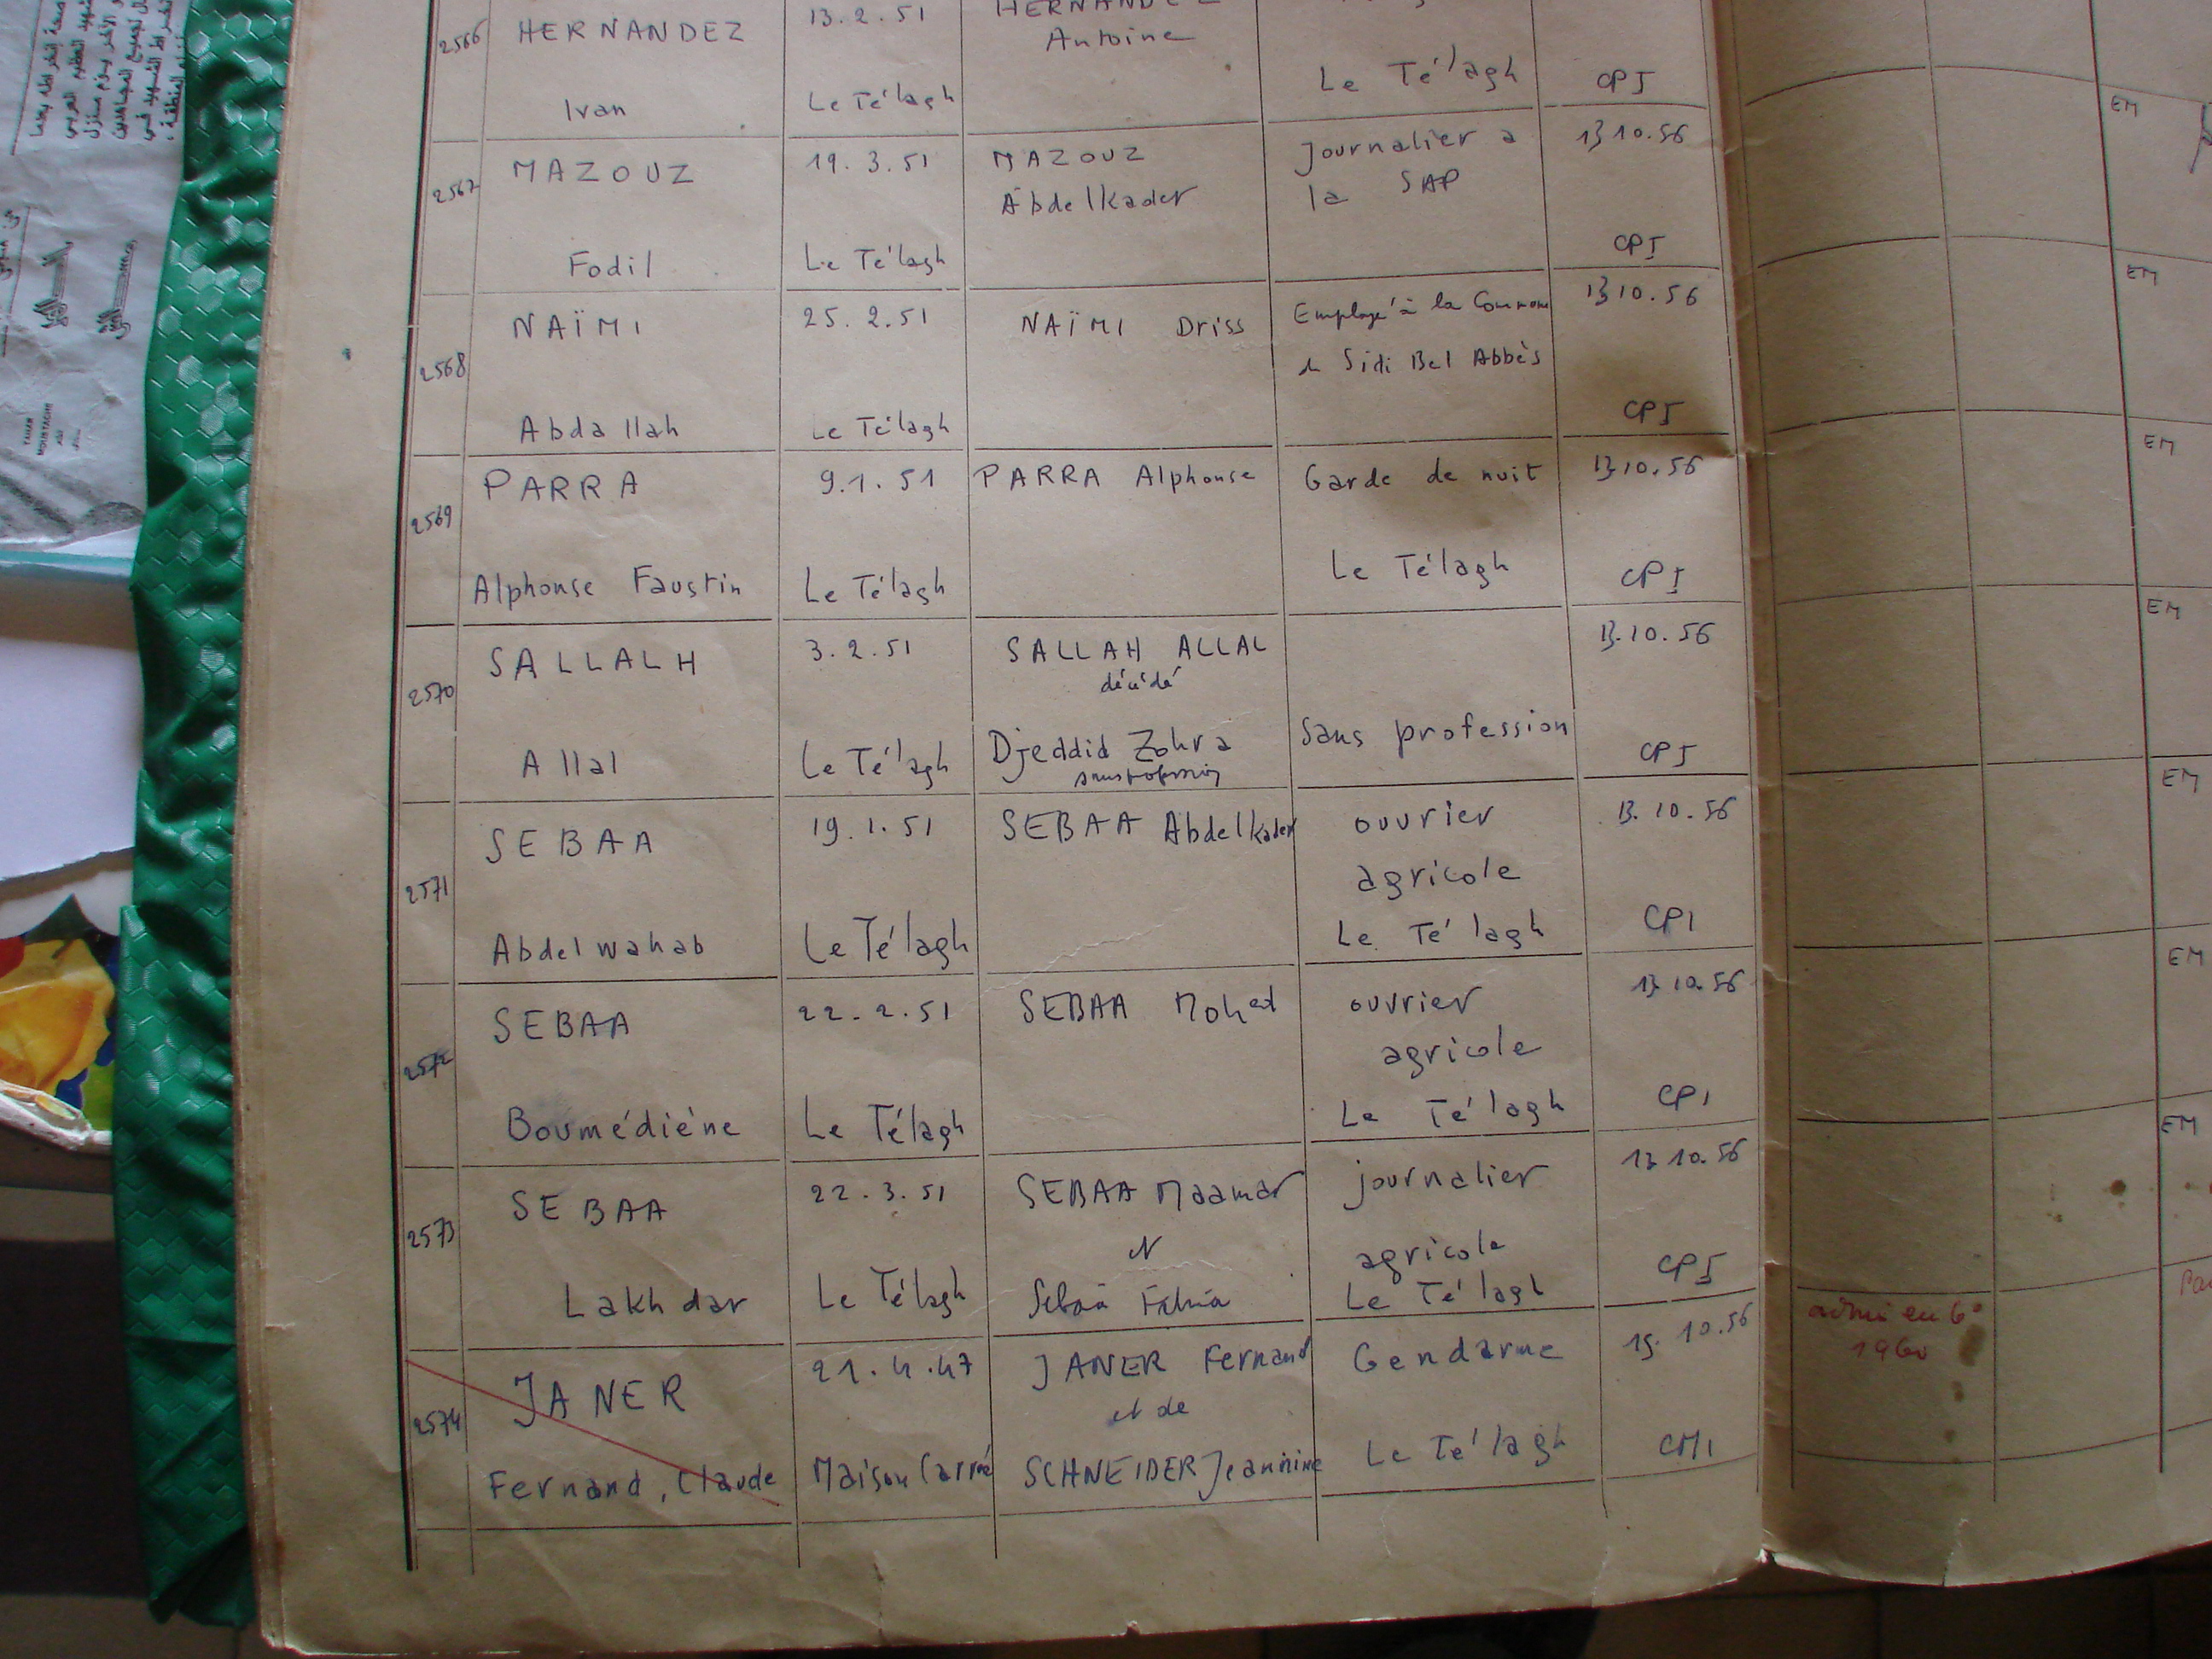 2566
HERNANDEZ
Ivan
13.2.51
Le Télagh
HERNANDEZ
Antoine
Le Télagh
CPI
2567
MAZOUZ
Fodil
19.3.51
Le Télagh
MAZOUZ
Abdelkader
Journalier a
la SAP
13 10.56
CPI
EM
2568
NAÏMI
Abdallah
25.2.51
Le Télagh
NAÏMI Driss
Employé à la Commune
de Sidi Bel Abbès
13 10.56
CPI
EM
2569
PARRA
Alphonse Faustin
9.1.51
Le Télagh
PARRA Alphonse
Garde de nuit
Le Télagh
13.10.56
CPI
EM
2570
SALLALH
Allal
3.2.51
Le Télagh
SALLAH ALLAL
décédé
Djeddid Zohra
sans profession
Sans profession
13.10.56
CPI
EM
2571
SEBAA
Abdelwahab
19.1.51
Le Télagh
SEBAA Abdelkader
ouvrier
agricole
Le Télagh
13.10.56
CP1
EM
2572
SEBAA
Boumédiène
22.2.51
Le Télagh
SEBAA Mohed
ouvrier
agricole
Le Télagh
13 10.56
CP1
EM
2573
SEBAA
Lakhdar
22.3.51
Le Télagh
SEBAA Maamar
et
journalier
agricole
Le Télagh
13 10.56
CPI
EM
2574
JANER
Fernand, Claude
21.4.47
Maison Carrée
JANER Fernand
et de
SCHNEIDER Jeannine
Gendarme
Le Télagh
15.10.56
CM1
admis en 6°
1960